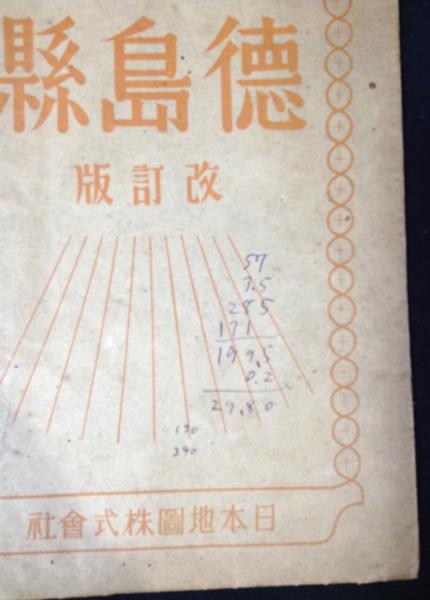 德島縣
改訂版
57
3.5
285
171
199.5
0.2
170
390
日本地圖株式會社